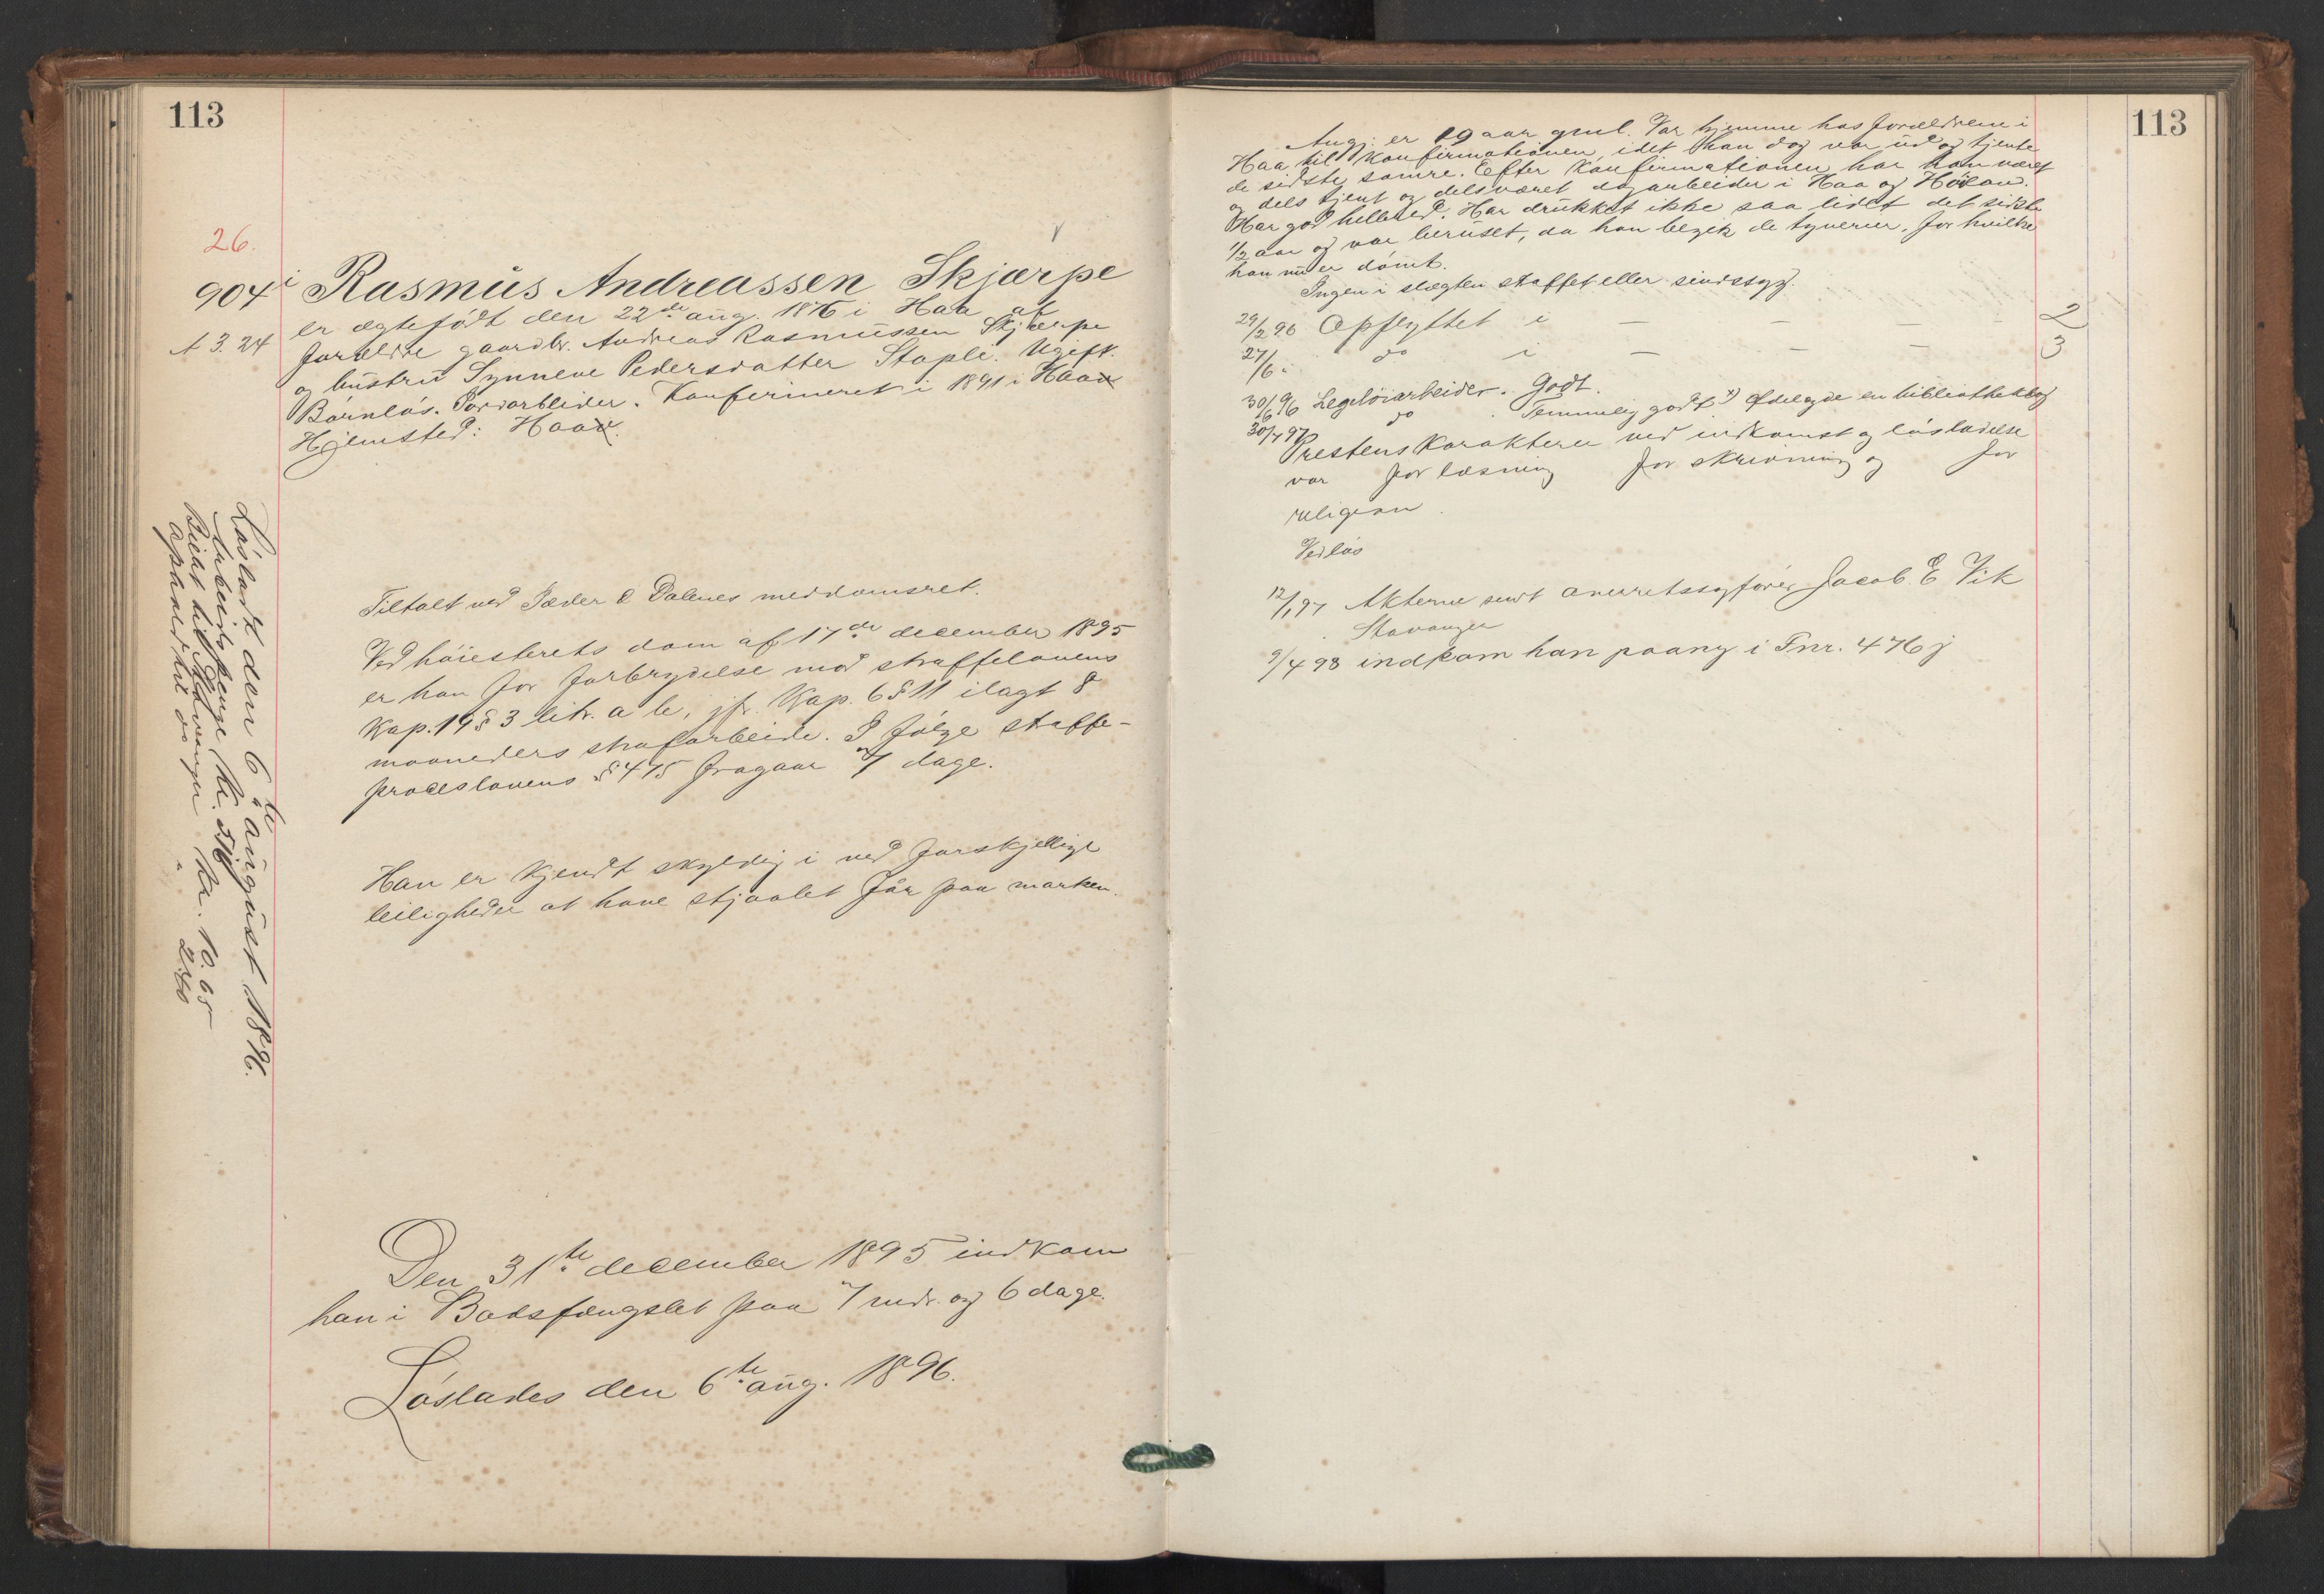 113
26.
904 i Rasmus Andreassen Skjærpe
A 3. 24
er ægtefødt den 22de aug. 1876 i Haa af
forældre gaardbr. Andreas Rasmussen Skjærpe
og hustru Synneve Pedersdatter Stapli. Ugift.
Barnløs. Jordarbeider. Konfirmeret i 1891 i Haa
Hjemsted: Haa
Løsladt den 6te august 1896.
Arbeidspenge kr.
Billet til Stavanger kr. 10.65
Ophold til do " 2.40
Tiltalt ved Jæder & Dalenes meddomsret.
Ved høiesterets dom af 17de december 1895
er han for forbrydelse mod straffelovens
Kap. 19 § 3 litr. a b, jfr. Kap. 6 § 11 ilagt 8
maaneders strafarbeide. I følge straffe-
proceslovens § 475 fragaar 7 dage.
Han er kjendt skyldig i ved forskjellige
leiligheder at have stjaalet får paa marken.
Den 31te december 1895 indkom
han i Bodsfængslet paa 7 mdr. og 6 dage.
Løslades den 6te aug. 1896.
113
Angj. er 19 aar gml. Var hjemme hos forældrene i
Haa til konfirmationen, idet han dog var ud og tjente
de sidste somre. Efter konfirmationen har han været
og dels tjent og dels været dagarbeider i Haa og Høiland.
Har god helbred. Har drukket ikke saa lidet det sidste
1/2 aar og var beruset, da han begik de tyverier, for hvilke
han nu er dømt.
Ingen i slægten straffet eller sindssyg.
29/2 96 Opflyttet i — — — 2
27/6 " do i — — — 3
30/6 96 Legetøiarbeider. Godt.
30/7 97 do. Temmelig godt x) Ødelagde en bibliotheksbog
Prestens karakterer ved indkomst og løsladelse
var for læsning for skrivning og for
religion.
Vedløs
12/1 97 Akterne sendt overretssagfører Jacob E Vik
Stavanger
9/4 98 indkom han paany i Fnr. 476 j